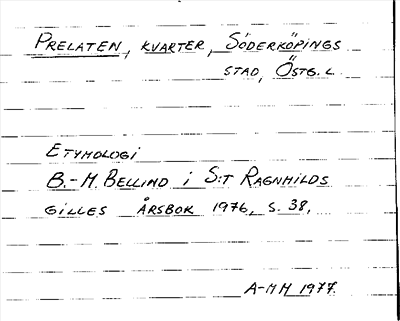 PRELATEN, KVARTER, SÖDERKÖPINGS
STAD, ÖSTG. L.
ETYMOLOGI
B.-M. BELLIND i S:T RAGNHILDS
GILLES ÅRSBOK 1976, S. 38,
A-MH 1977.